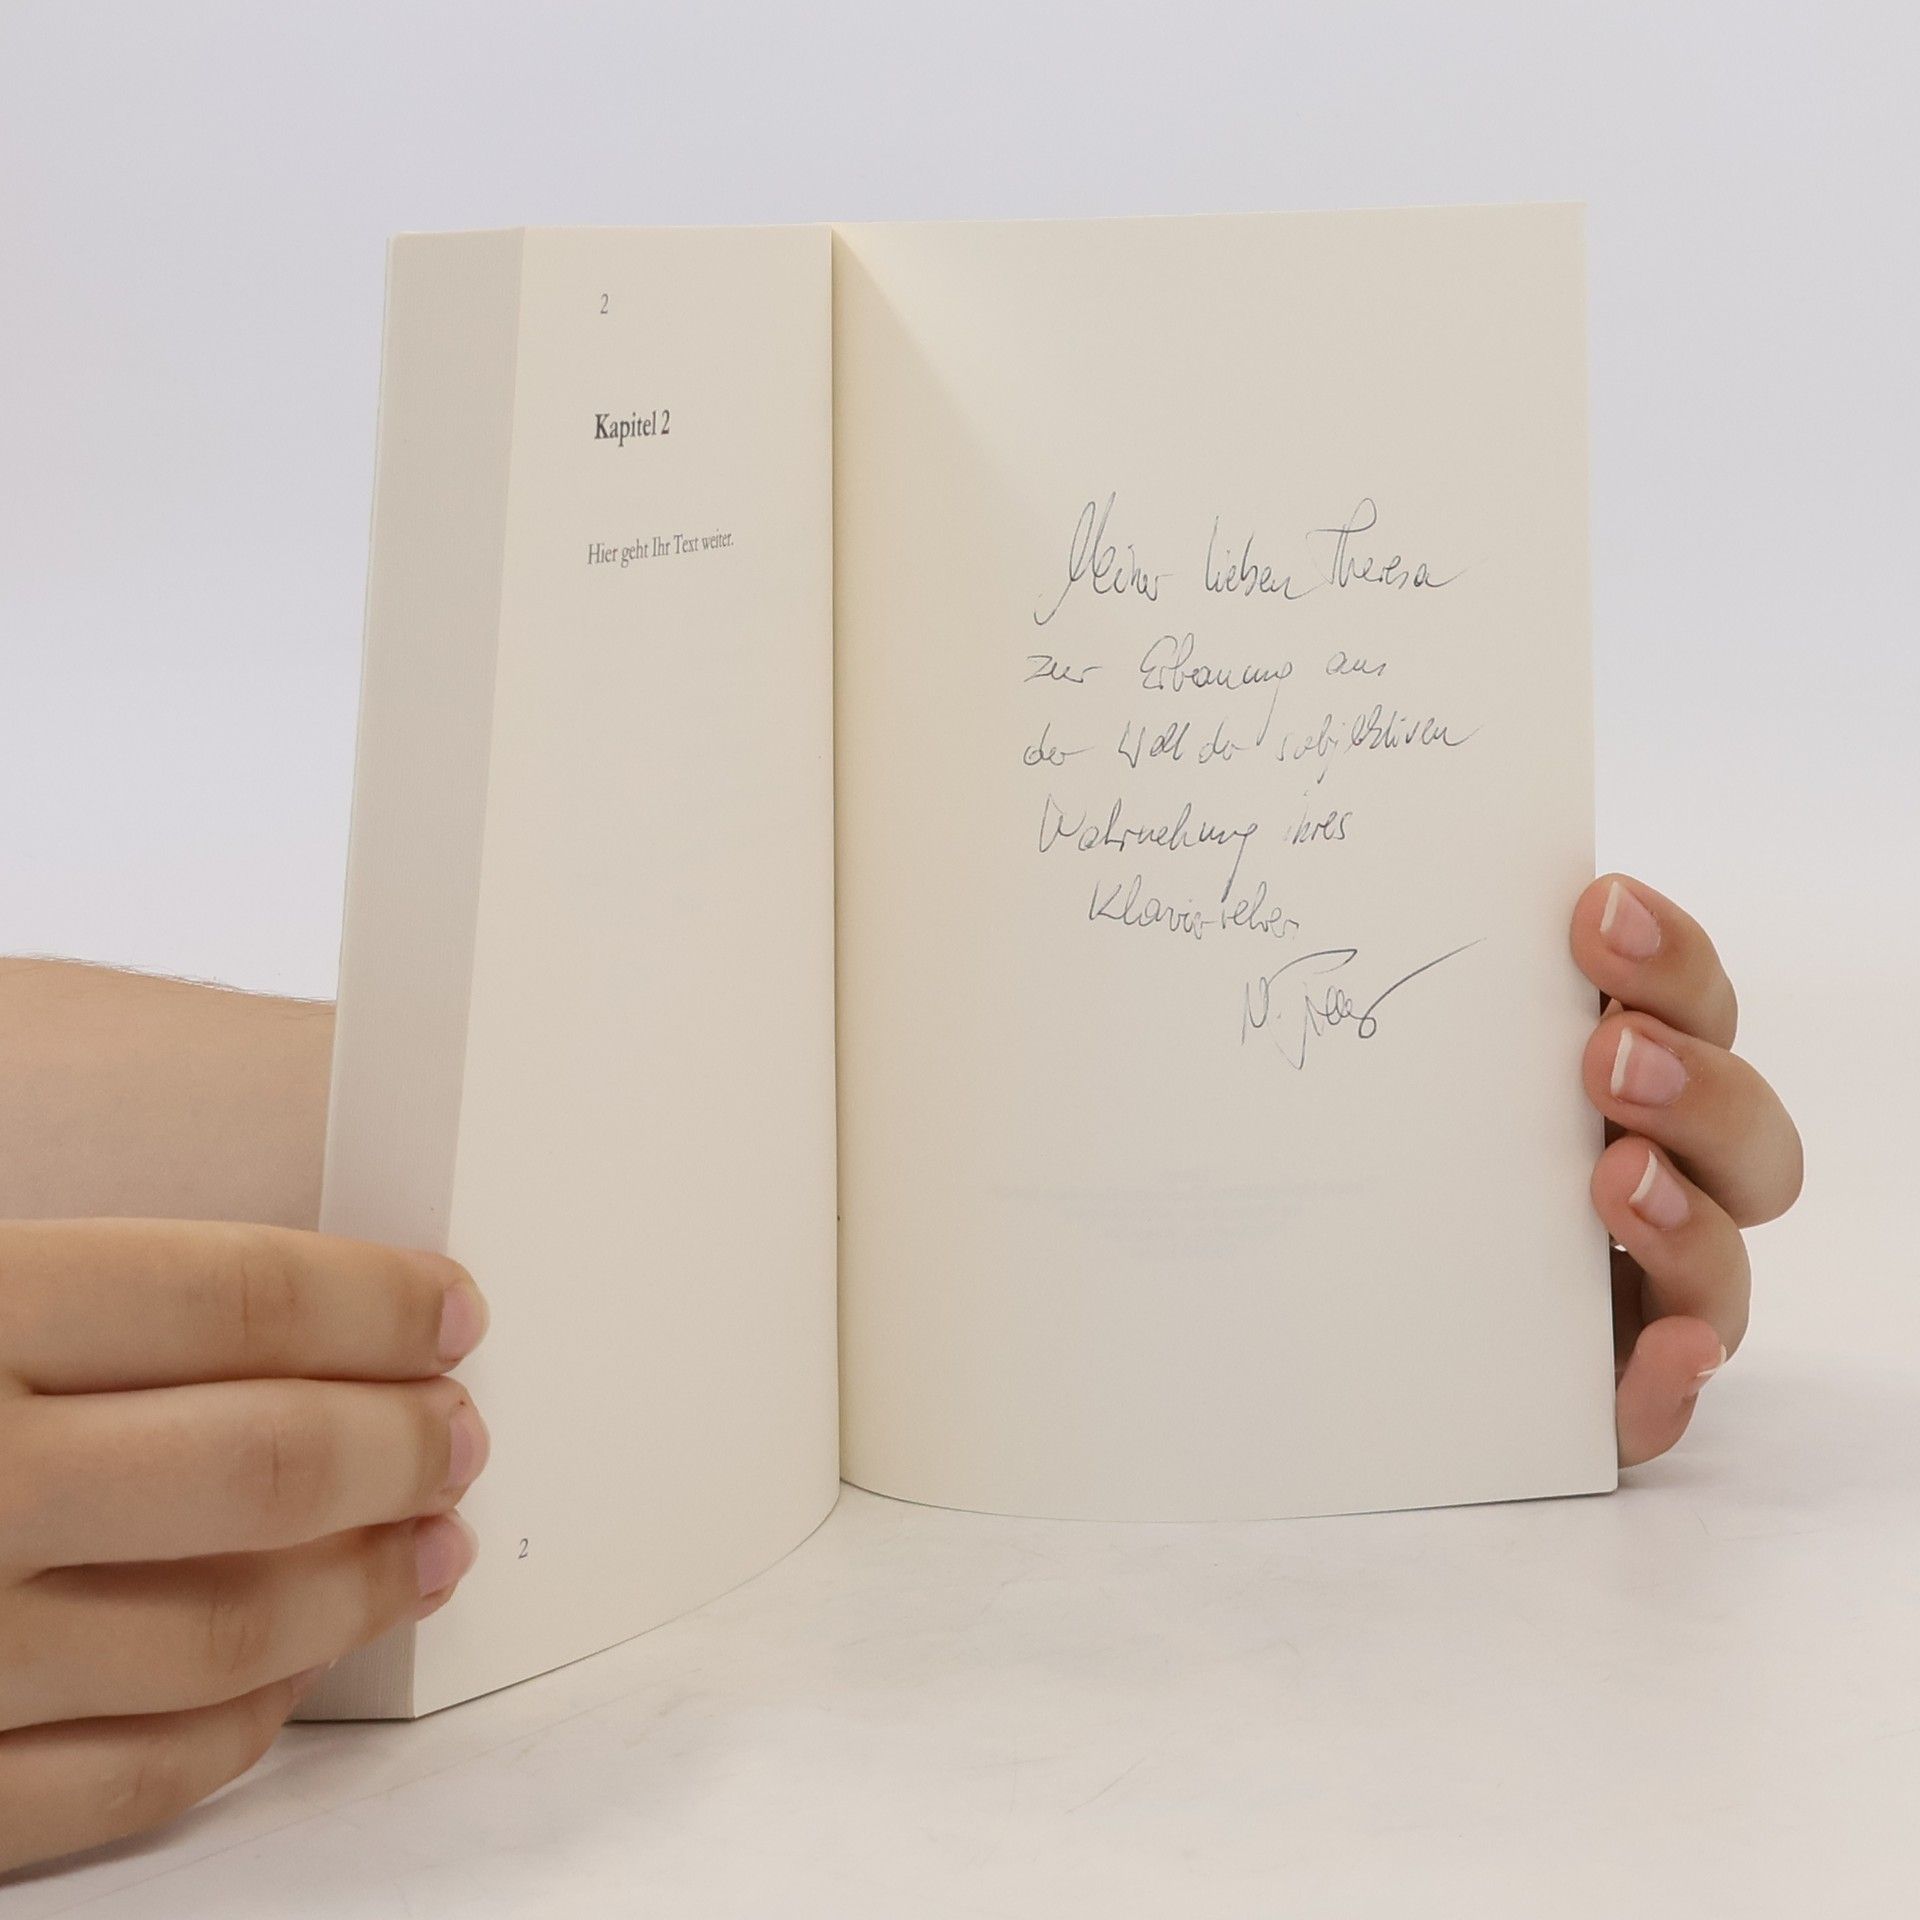 2
Kapitel 2
Hier geht Ihr Text weiter.
2
Meiner lieben Theresa
zur Erbauung aus
der Welt der subjektiven
Wahrnehung ihres
Klavier
N.